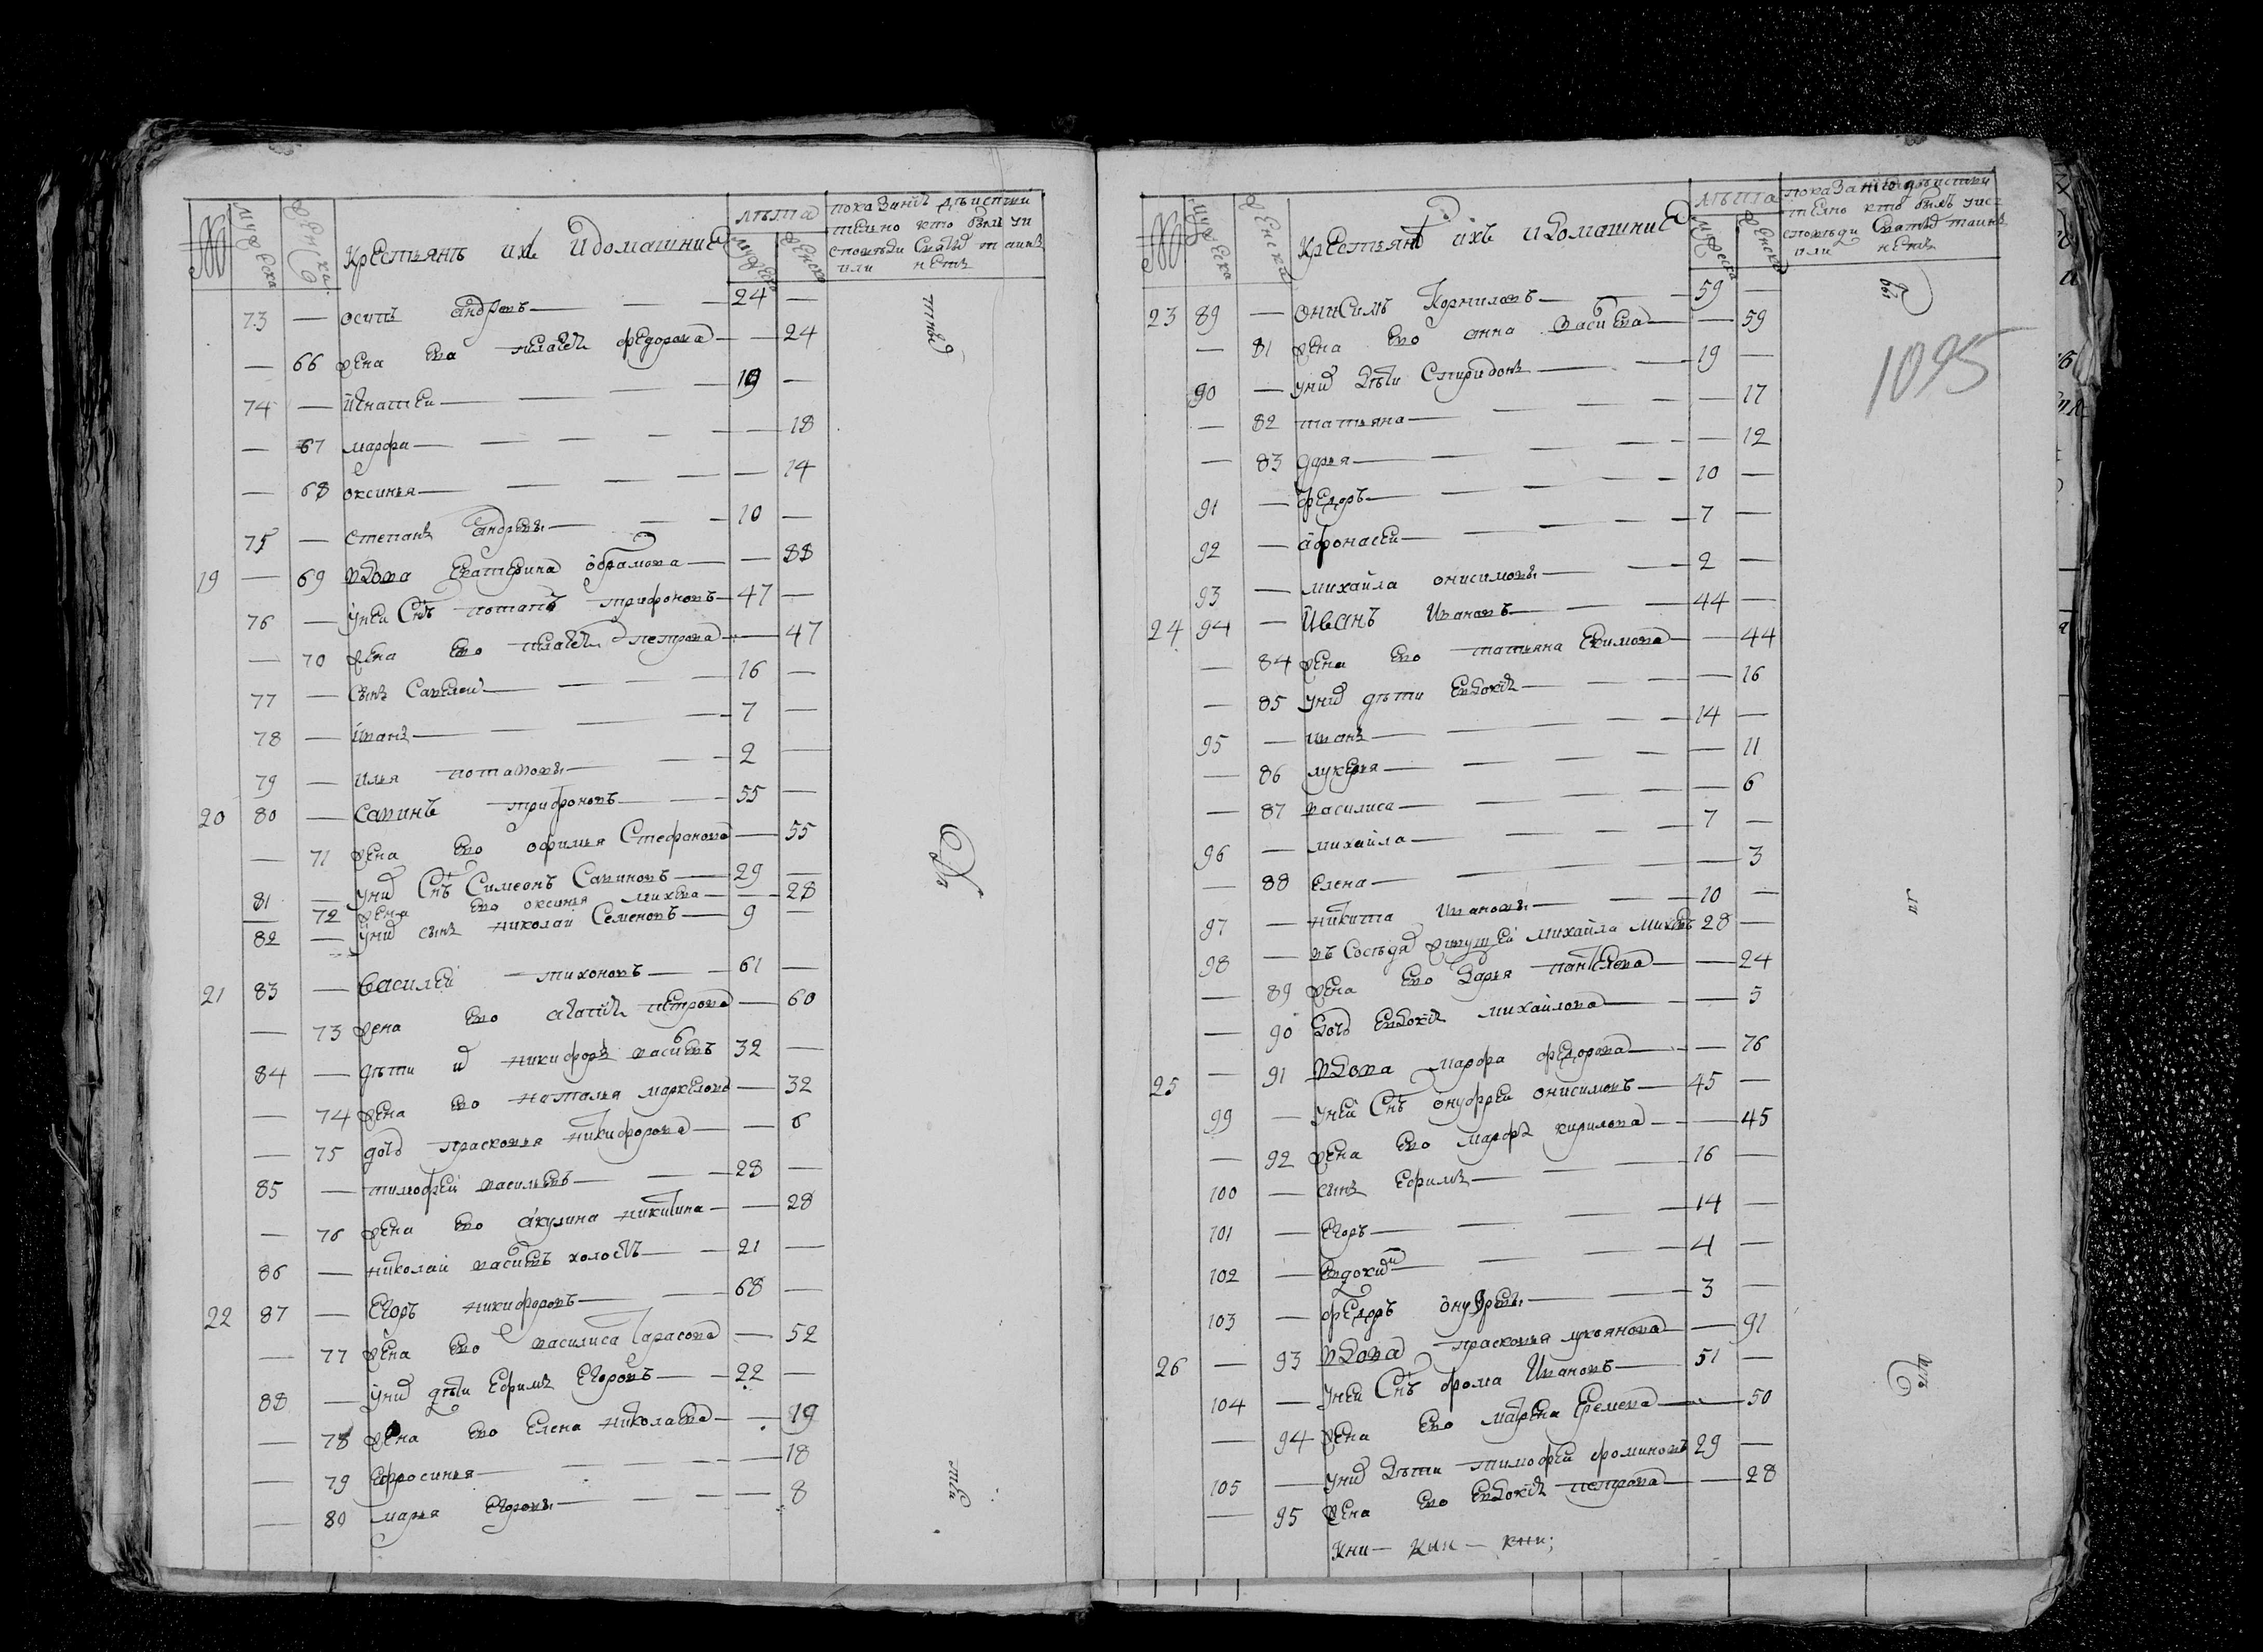 № мужеска женска Крестьянъ ихъ и домашние лѣта мужеска женска показание действи
тельно кто былъ у и
споведи Святыхъ таинъ
или нетъ
73 — осипъ андреевъ — 24 —
— 66 жена ево пелагея федорова — 24
74 — игнатеи — 19 —
— 67 марфа — 18
— 68 оксинья — 14
75 — степанъ андреевы — 10 —
19 — 69 вдова Екатерина обрамова — 88
76 — у неи Снъ потапъ трифоновъ — 47 —
— 70 жена ево пелагея петрова — 47
77 — сынъ Савелеи — 16 —
78 — иванъ — 7 —
79 — илья потаповы — 2 —
20 80 — савинъ трифоновъ — 55 —
— 71 жена ево офимья Стефанова — 55
81 — у них Снъ Симеонъ Савиновъ — 29 —
— 72 жена ево оксинья михева — 28
82 — у них сынъ николаи Семеновъ — 9 —
21 83 — василеи тихоновъ — 61 —
— 73 жена ево агапия петрова — 60
84 — дети их никифоръ васильевъ 32 —
— 74 жена ево наталья маркелова — 32
— 75 дочь прасковья никифорова — 6
85 — тимофеи васильевъ — 28 —
— 76 жена ево акулина никитина — 28
86 — николаи васильевъ холостъ — 21 —
22 87 — Егоръ никифоровъ — 68 —
— 77 жена ево василиса тарасова — 52
88 — у них дети Ефимъ Егоровъ — 22 —
— 78 жена ево Елена николаева — 19
— 79 Ефросинья — 18
— 80 марья Егоровы — 8
№ мужеска женска Крестьянъ ихъ и домашние лѣта мужеска женска показание действи
тельно кто былъ у ис
споведи Святыхъ таинъ
или нетъ
1095
23 89 — онисимъ Корниловъ — 59 —
— 81 жена ево анна васильева — 59
90 — у них дети Спиридонъ — 19 —
— 82 татьяна — 17
— 83 дарья — 12
91 — федоръ — 10 —
92 — афонасеи — 7 —
93 — михаила онисимовы — 2 —
24 94 — иванъ ивановъ — 44 —
— 84 жена ево татьяна Екимова — 44
— 85 у них дети Евдокия — 16
95 — иванъ — 14 —
— 86 лукерья — 11
— 87 василиса — 6
96 — михаила — 7 —
— 88 Елена — 3
97 — никита ивановы — 10 —
98 — въ Соседях живущеи михаила михевъ 28 —
— 89 жена ево дарья пантелева — 24
— 90 дочь Евдокия михаилова — 5
25 — 91 вдова марфа федорова — 76
99 — у неи Снъ онуфреи онисимовъ — 45 —
— 92 жена ево марфа кирилова — 45
100 — сынъ Ефимъ — 16 —
101 — Егоръ — 14 —
102 — Евдоким — 4 —
103 — федоръ онуфревы — 3 —
26 — 93 вдова прасковья лукянова — 91
104 — у неи Снъ фома ивановъ — 51 —
— 94 жена ево матрена Еремева — 50
105 — у них дети тимофеи фоминовъ 29 —
— 95 жена ево Евдокия петрова — 28